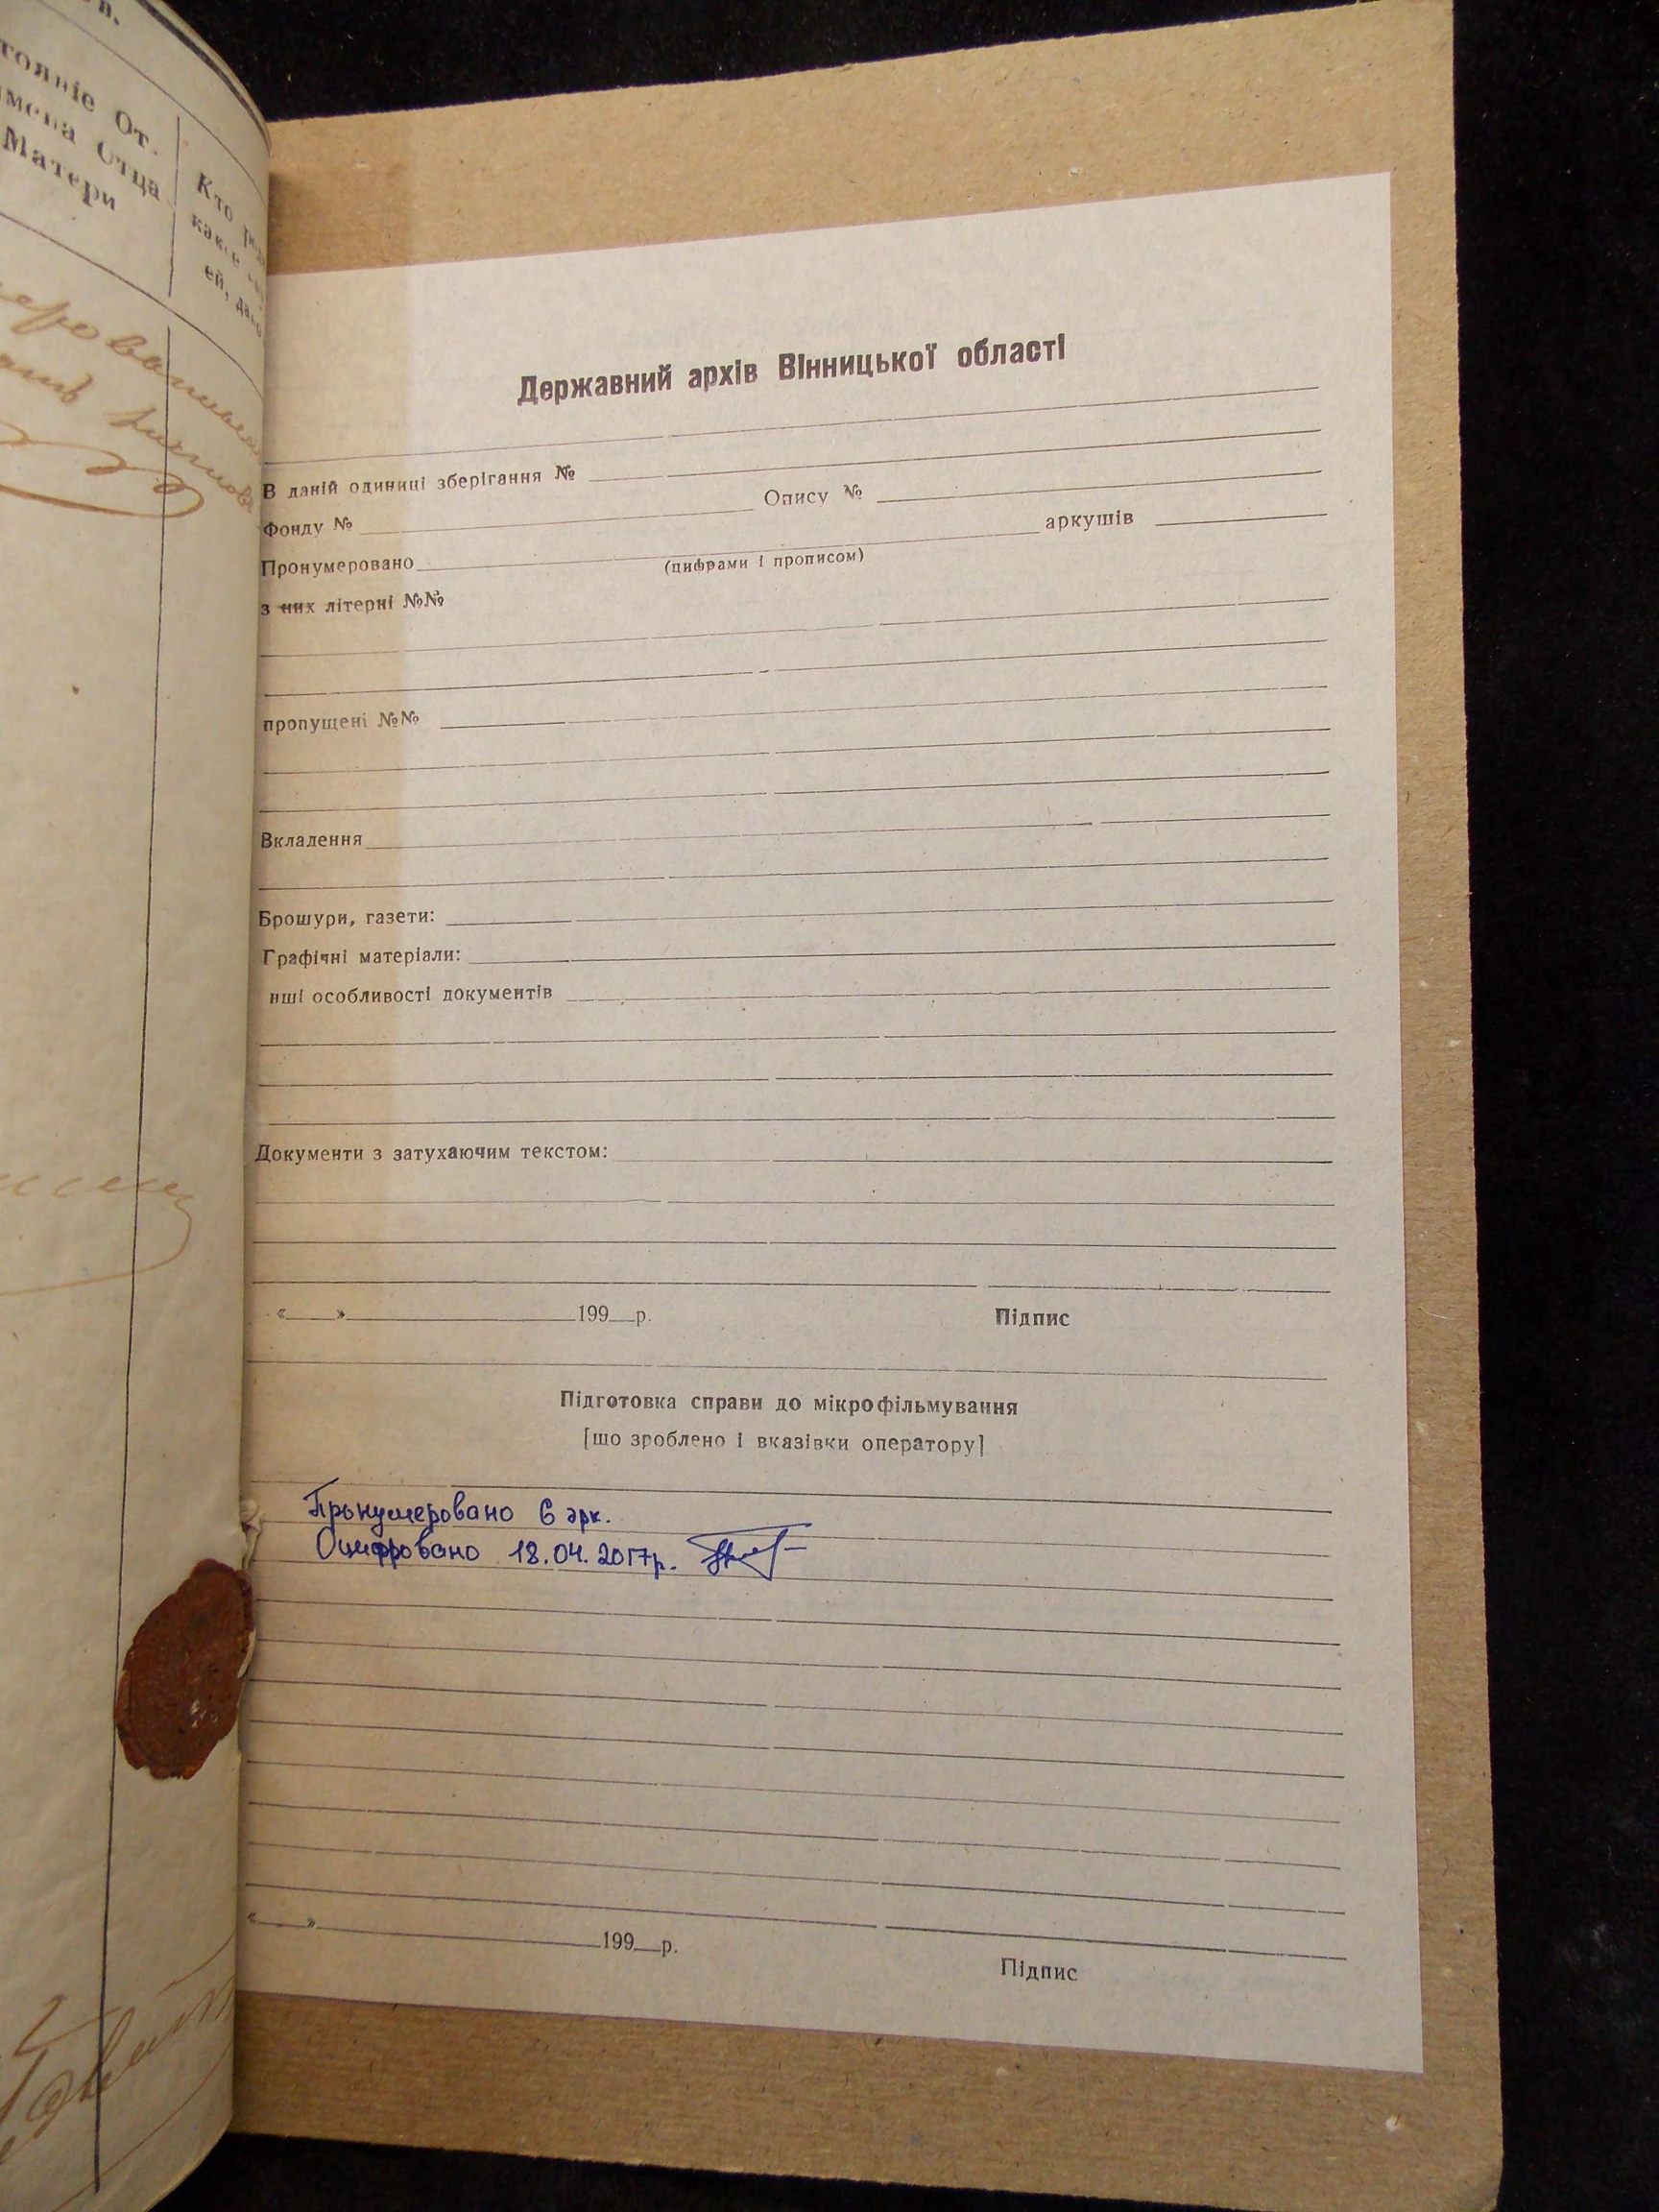 тояніе От.
мена Отца
Матери
Кто
какое
ей,
Державний архів Вінницької області
В даній одиниці зберігання №
Фонду № Опису №
Пронумеровано аркушів
(цифрами і прописом)
з них літерні №№
пропущені №№
Вкладення
Брошури, газети:
Графічні матеріали:
нші особливості документів
Документи з затухаючим текстом:
« » 199 р. Підпис
Підготовка справи до мікрофільмування
[що зроблено і вказівки оператору]
Пронумеровано 6 арк.
Оцифровано 18.04.2017р.
« » 199 р.
Підпис